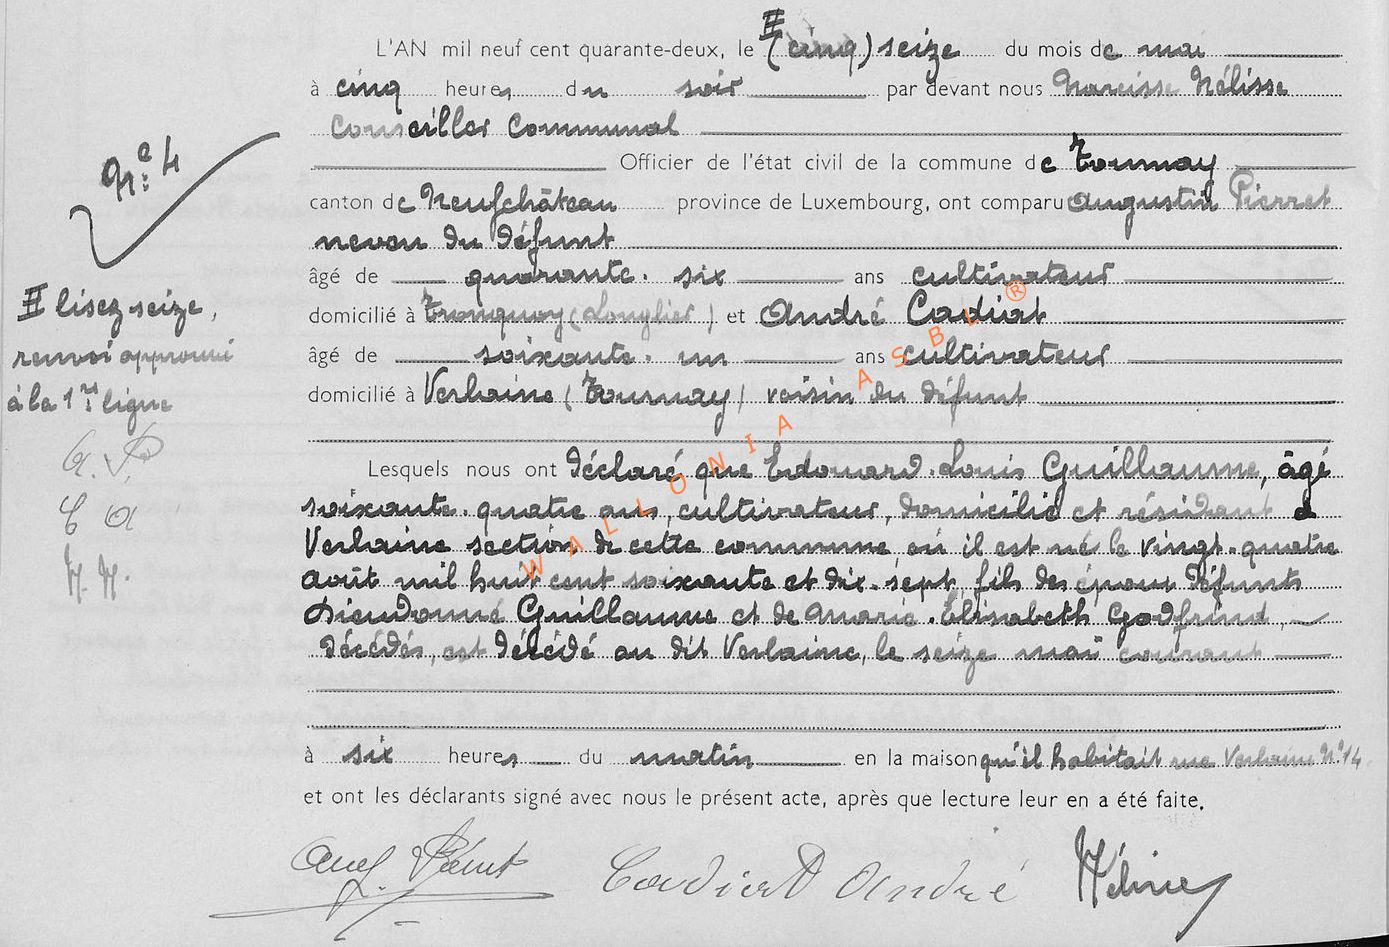 L'AN mil neuf cent quarante-deux, le (cinq) seize du mois de mai
à cinq heures du soir par devant nous Narcisse Nélisse
Conseiller Communal
N° 4
Officier de l'état civil de la commune de Tournay
canton de Neufchâteau province de Luxembourg, ont comparu Augustin Pierret
neveu du défunt
âgé de quarante-six ans cultivateur
II lisez seize,
domicilié à Tronquoy (Longlier) et André Cadiat
renvoi approuvé
âgé de soixante-un ans cultivateur
à la 1re ligne
domicilié à Verlaine (Tournay) voisin du défunt
A. P
Lesquels nous ont déclaré que Edouard-Louis Guillaume, âgé
soixante-quatre ans, cultivateur, domicilié et résidant à
C A
Verlaine section de cette commune où il est né le vingt-quatre
N. N.
août mil huit cent soixante et dix-sept, fils des époux défunts
Dieudonné Guillaume et de Marie-Elisabeth Godfrind,
décédés, est décédé au dit Verlaine, le seize mai courant
à six heures du matin en la maison qu'il habitait rue Verlaine N° 14
et ont les déclarants signé avec nous le présent acte, après que lecture leur en a été faite.
Aug. Pierret Cadiat André Nélisse
WALLONIA ASBL ®